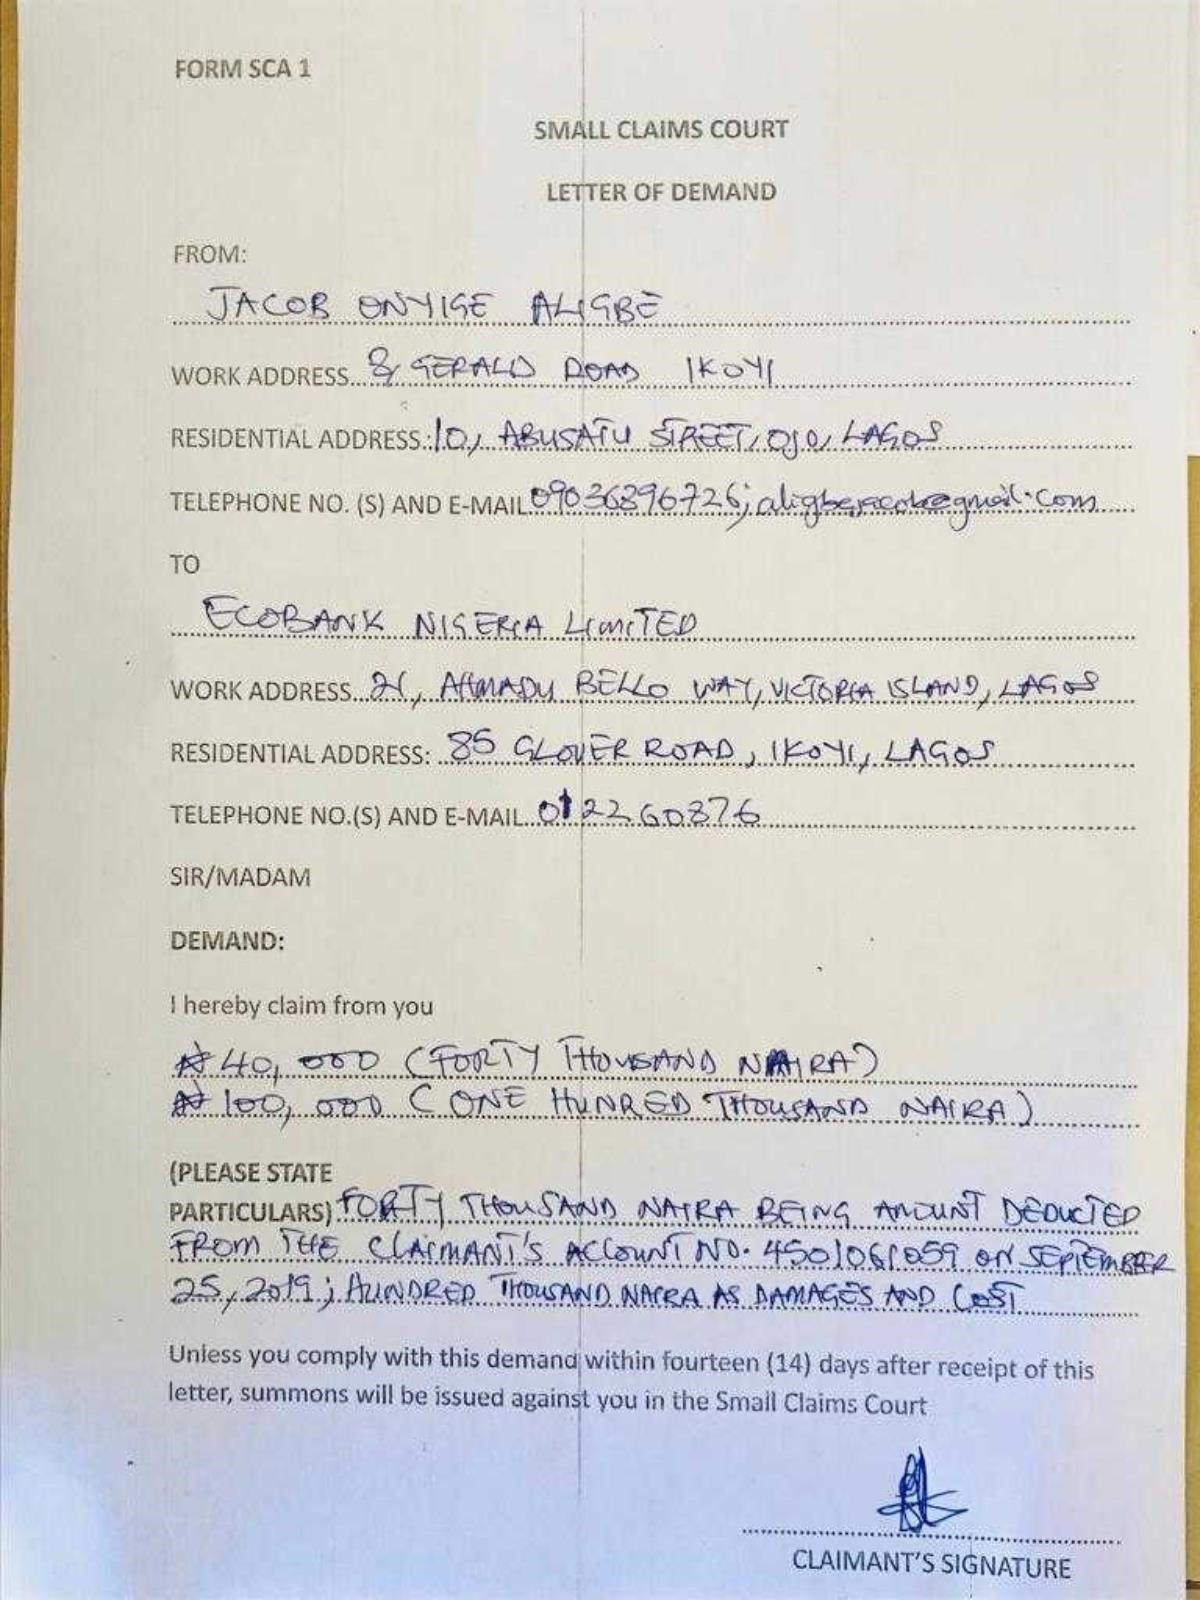 FORM SCA 1
SMALL CLAIMS COURT
LETTER OF DEMAND
FROM:
JACOB ONYIGE ALIGBE
WORK ADDRESS 8, GERALD ROAD IKOYI
RESIDENTIAL ADDRESS: 10, ABUSATU STREET, OJO, LAGOS
TELEPHONE NO. (S) AND E-MAIL 09036896726; aligbejacob@gmail.com
TO
ECOBANK NIGERIA LIMITED
WORK ADDRESS 21, AHMADU BELLO WAY, VICTORIA ISLAND, LAGOS
RESIDENTIAL ADDRESS: 85 GLOVER ROAD, IKOYI, LAGOS
TELEPHONE NO.(S) AND E-MAIL 012260876
SIR/MADAM
DEMAND:
I hereby claim from you
₦40,000 (FORTY THOUSAND NAIRA)
₦100,000 (ONE HUNRED THOUSAND NAIRA)
(PLEASE STATE
PARTICULARS) FORTY THOUSAND NAIRA BEING AMOUNT DEDUCTED
FROM THE CLAIMANT'S ACCOUNT NO. 4501061059 ON SEPTEMBER
25, 2019; HUNDRED THOUSAND NAIRA AS DAMAGES AND COST
Unless you comply with this demand within fourteen (14) days after receipt of this
letter, summons will be issued against you in the Small Claims Court
CLAIMANT'S SIGNATURE